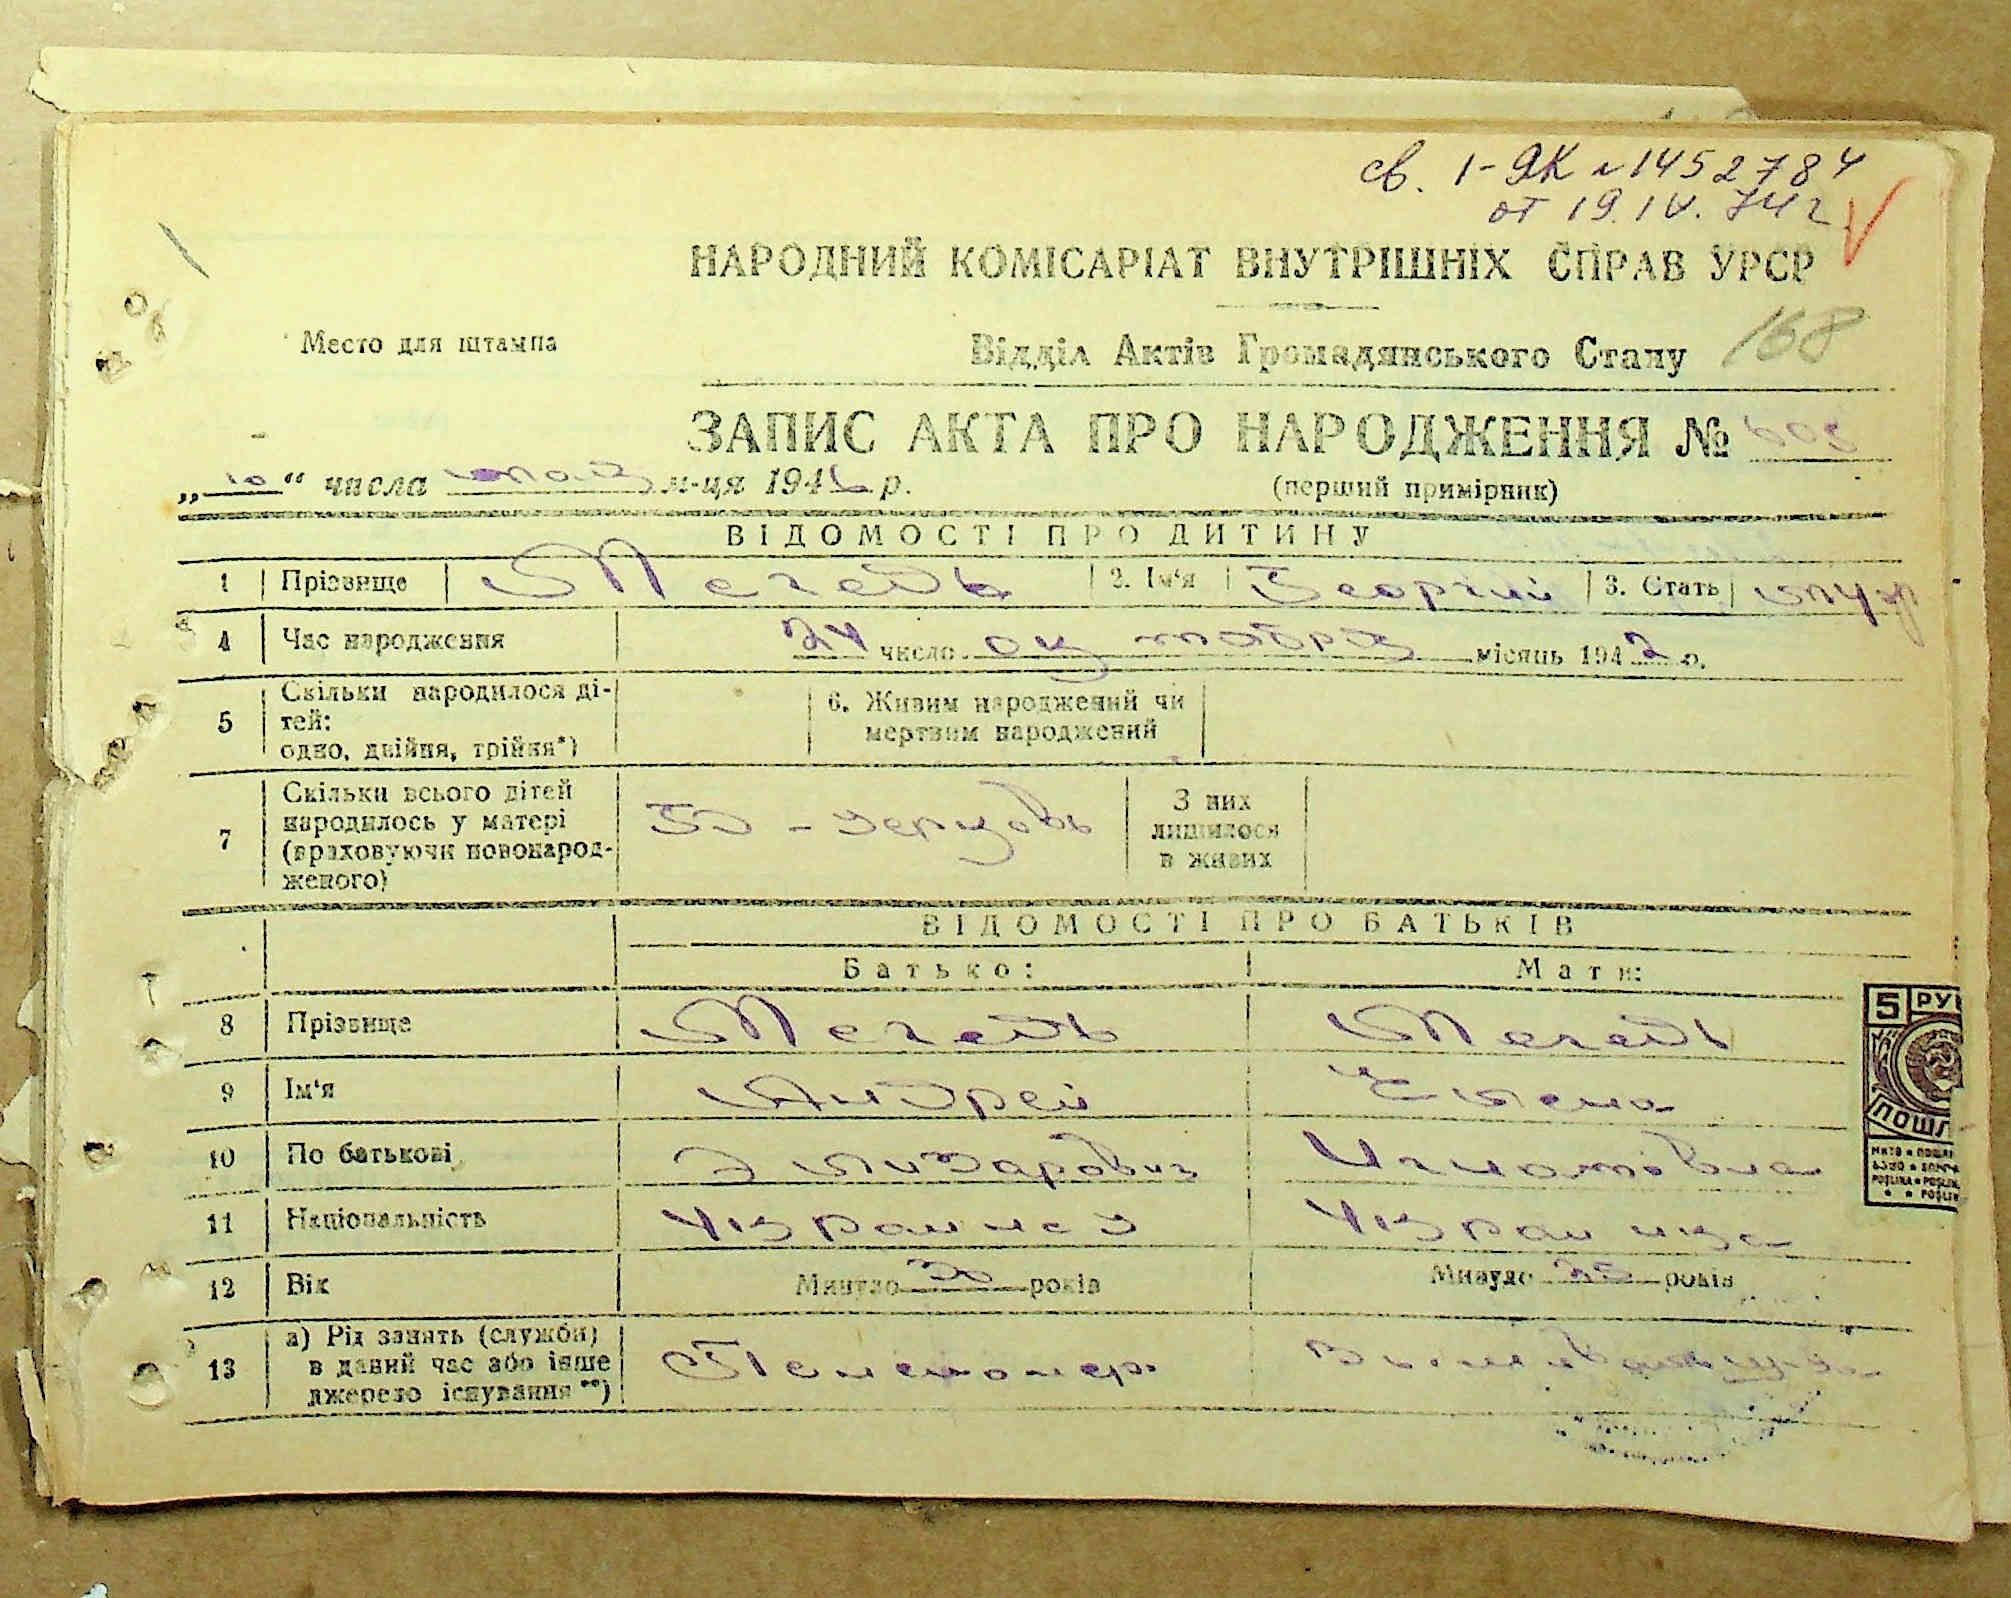 св. 1-ЯК № 1452784
от 19.IV.74 г
НАРОДНИЙ КОМІСАРІАТ ВНУТРІШНІХ СПРАВ УРСР
Место для штампа
Відділ Актів Громадянського Стану 168
ЗАПИС АКТА ПРО НАРОДЖЕННЯ №
„10“ числа мая м-ця 194 р.
(перший примірник)
ВІДОМОСТІ ПРО ДИТИНУ
1 Прізвище Мегедь 2. Ім‘я Георгий 3. Стать муж
4 Час народження 24 число октября місяць 1942 р.
5 Скільки народилося ді-
тей:
одно, двійня, трійня*)
6. Живим народжений чи
мертвим народжений
7 Скільки всього дітей
народилось у матері
(враховуючи новонарод-
женого)
З них
лишилося
в живих
ВІДОМОСТІ ПРО БАТЬКІВ
Батько: Мати:
8 Прізвище Мегедь Мегедь
9 Ім‘я Андрей Елена
10 По батькові Элизарович Игнатовна
11 Національність Украинец Украинка
12 Вік Минуло 30 років Минуло років
13 а) Рід занять (служби)
в даний час або інше
джерело існування**)
Пенсионер
5 РУ
ПОШЛ